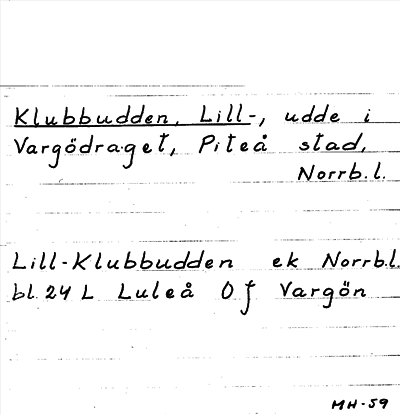 Klubbudden, Lill-, udde i
Vargödraget, Piteå stad,
Norrb.l.
Lill-Klubbudden ek Norrb.l.
bl. 24 L Luleå Of Vargön
MH-59